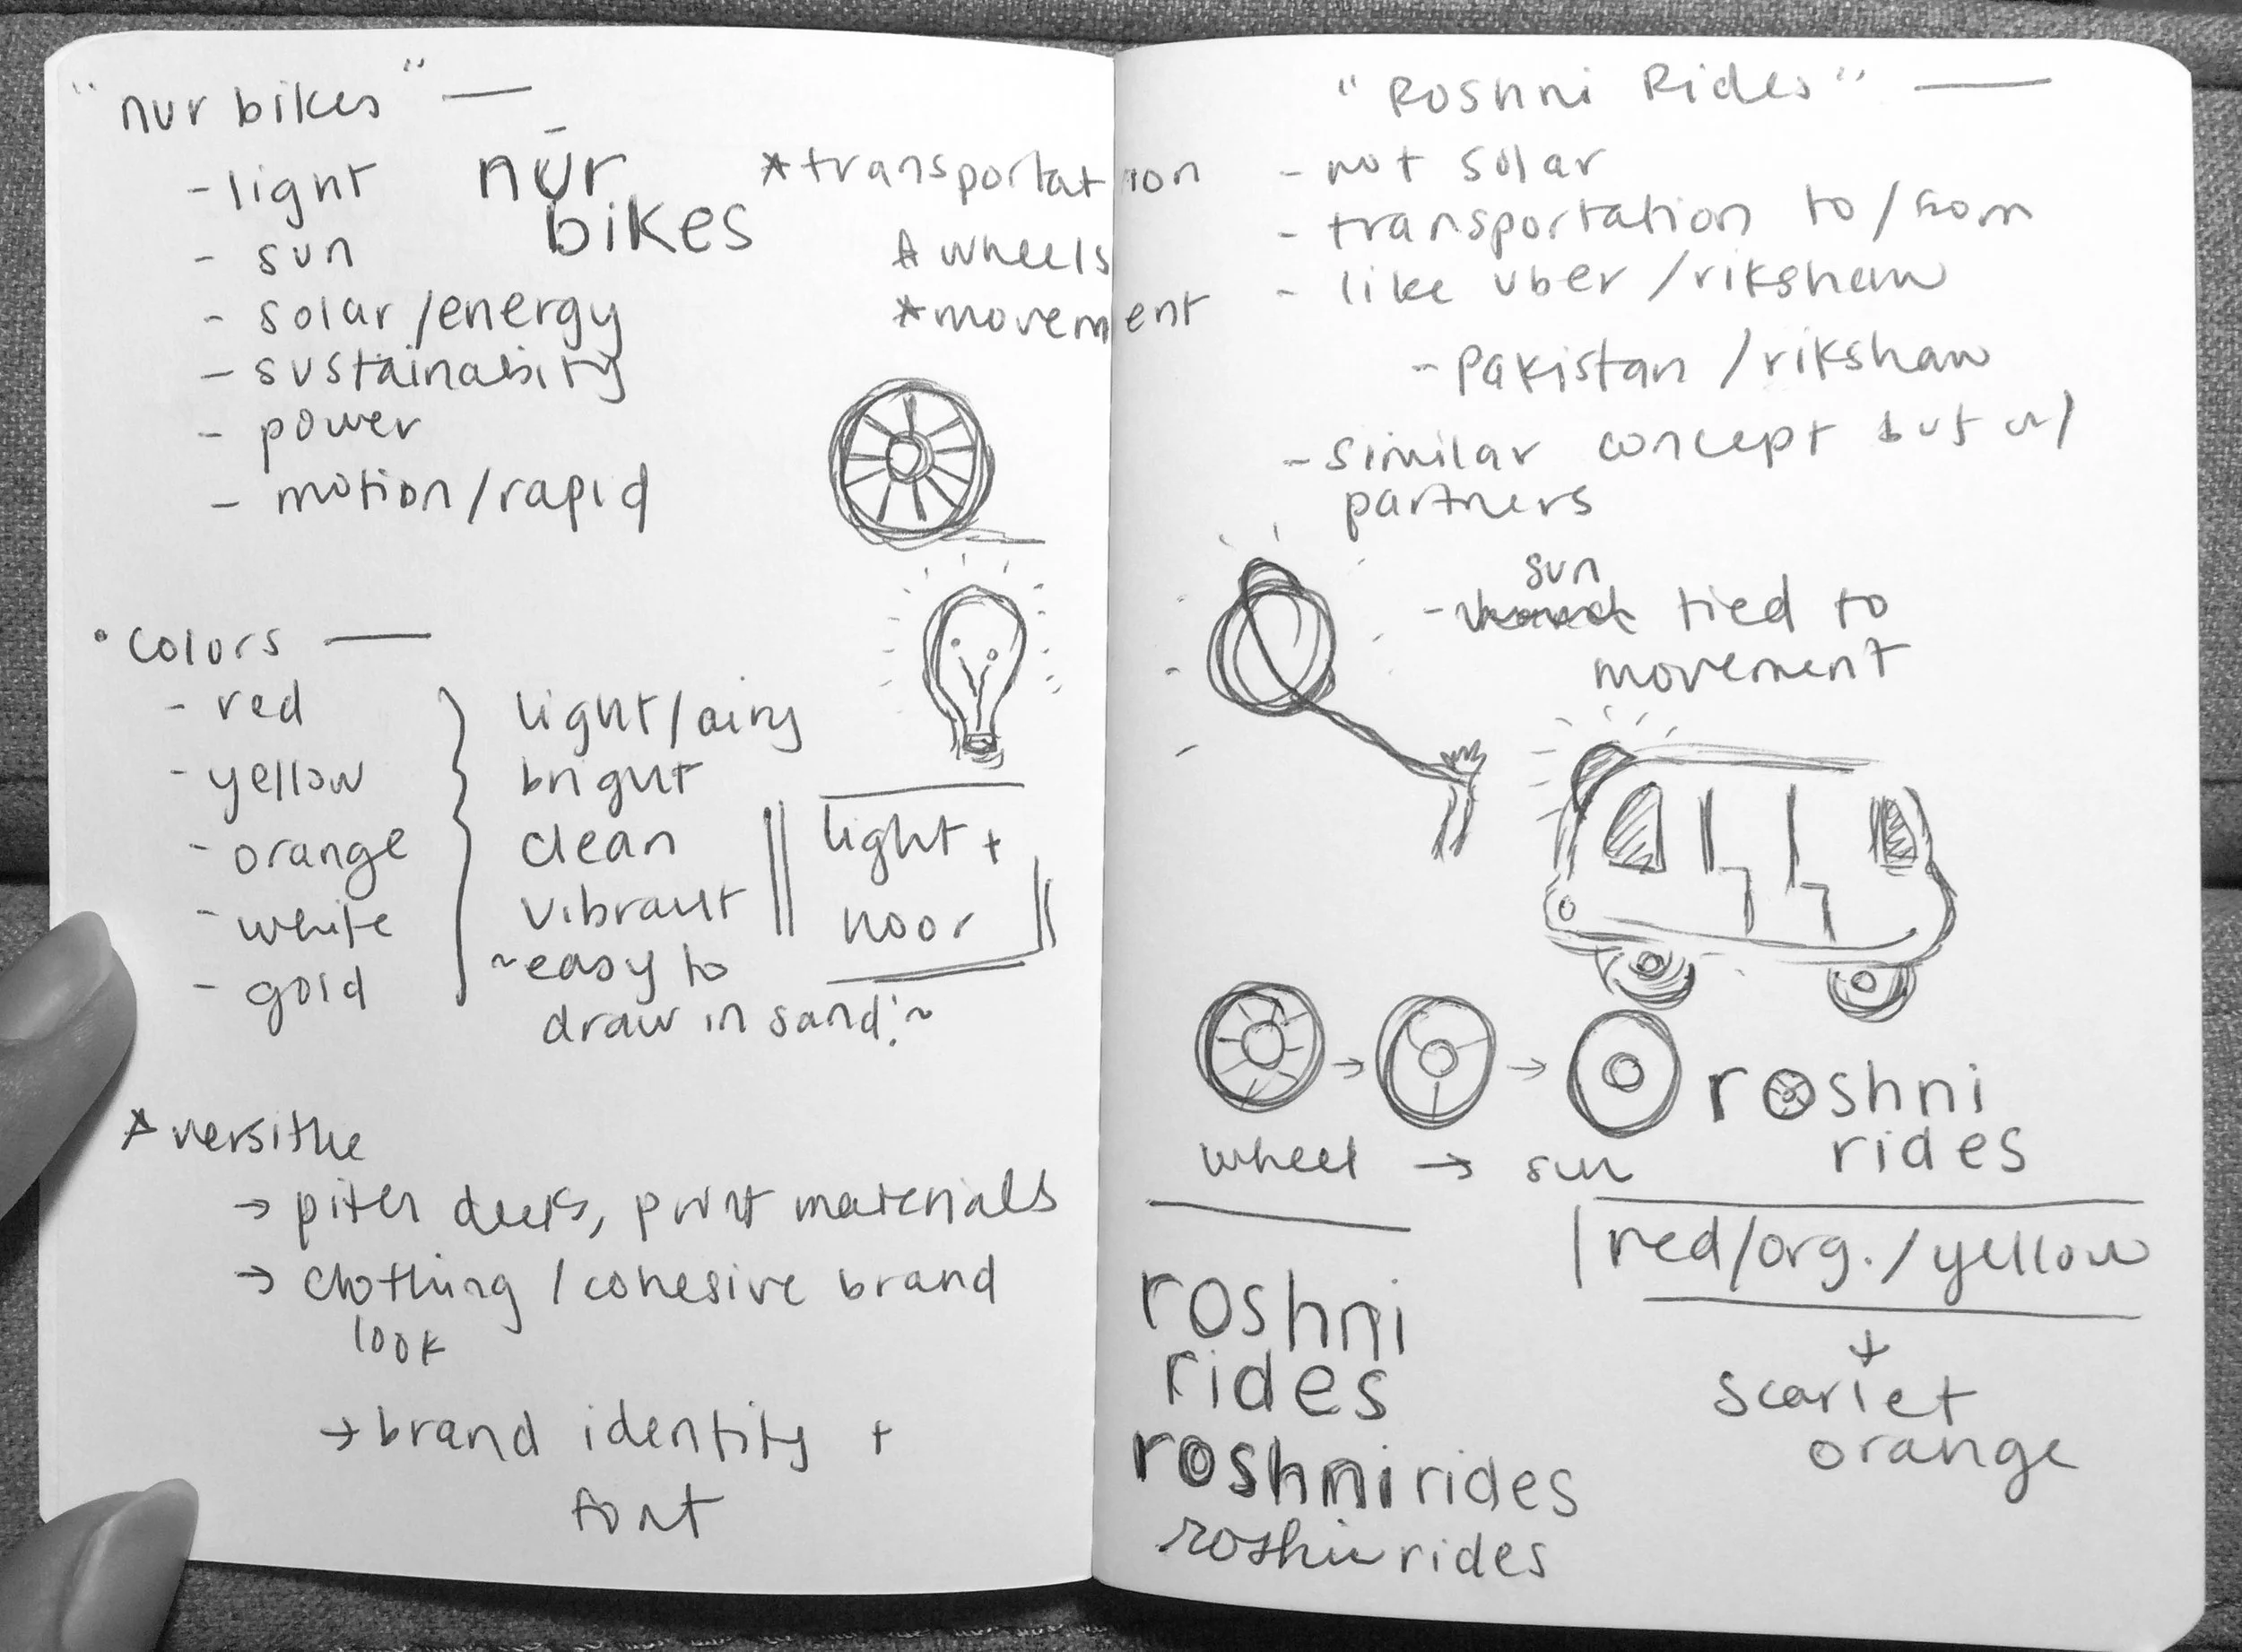 "nur bikes" —
- light
- sun
- solar/energy
- sustainability
- power
- motion/rapid
nūr
bikes
*transportation
*wheels
*movement
• colors —
- red
- yellow
- orange
- white
- gold
light/airy
bright
clean
vibrant
~easy to
draw in sand!~
light +
noor
*versitle
→ pitch decks, print materials
→ clothing / cohesive brand
look
→ brand identity +
font
"Roshni Rides" —
- not solar
- transportation to/from
- like uber/rikshaw
- Pakistan/rikshaw
- similar concept but w/
partners
sun
- tied to
movement
wheel → sun
roshni
rides
red/org./yellow
scarlet
orange
roshni
rides
roshnirides
roshni rides